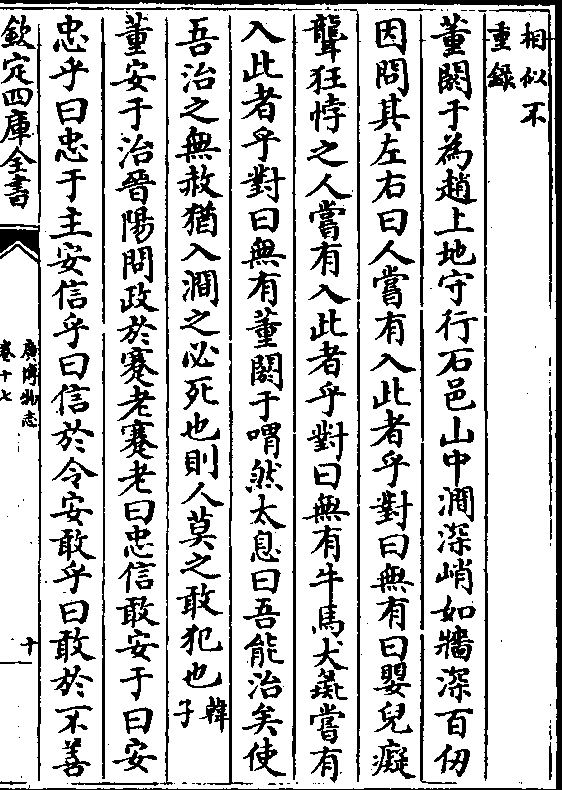 相似不
重録
董閼于為趙上地守行石邑山中澗深峭如牆深百仞
因問其左右曰人嘗有入此者乎對曰無有曰嬰兒癡
聾狂悖之人嘗有入此者乎對曰無有牛馬犬彘嘗有
入此者乎對曰無有董閼于喟然太息曰吾能治矣使
吾治之無赦猶入澗之必死也則人莫之敢犯也韓
子
董安于治晉陽問政於蹇老蹇老曰忠信敢安于曰安
忠乎曰忠于主安信乎曰信於令安敢乎曰敢於不善
欽定四庫全書
廣博物志
卷十七
十